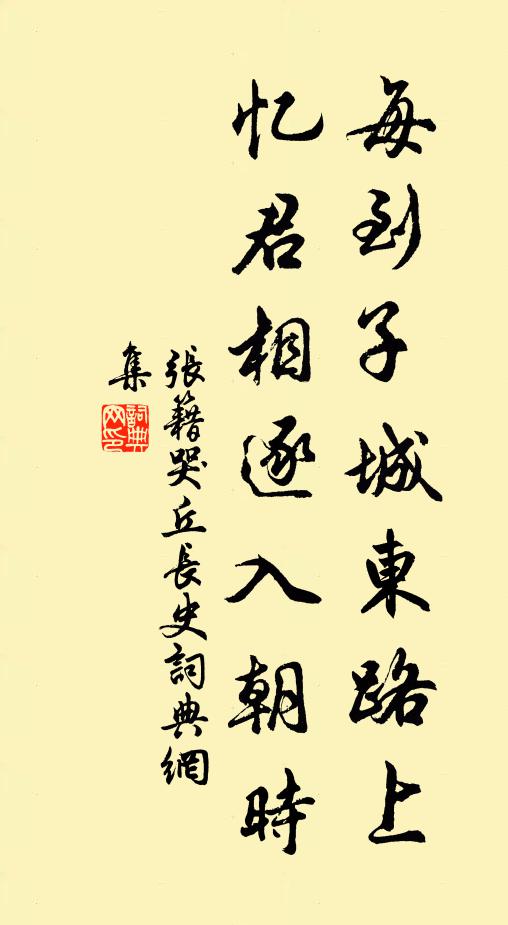 每到子城東路上
忆君相逐入朝時
張籍哭丘長史詞典網
集
詞典網印